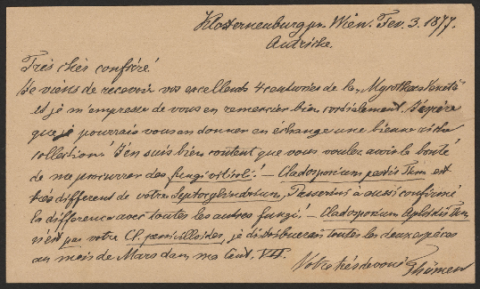 Klosterneuburg pr. Wien. Fev. 3. 1877.
Autriche
Très cher confrère!
Je viens de recevoir vos excellents 4 centuries de la „Mycotheca Veneta"
et je m'empresse de vous en remercier bien cordialement. J'espère
que je pourrais vous en donner en échange une bienne riche
collection! J'en suis bien content que vous voulez avoir la bonté
de me procurer des fungi! — Cladosporium Thüm est
très different de votre Septocylindrium, Passerini a aussi confirmé
la difference avec toutes les autres fungi! — Cladosporium Thüm,
n'est pas votre Cl. penicilloides, je distribuerai toutes les deux espèces
au mois de Mars dans ma Cent. VII.
Votre très devoué Thümen